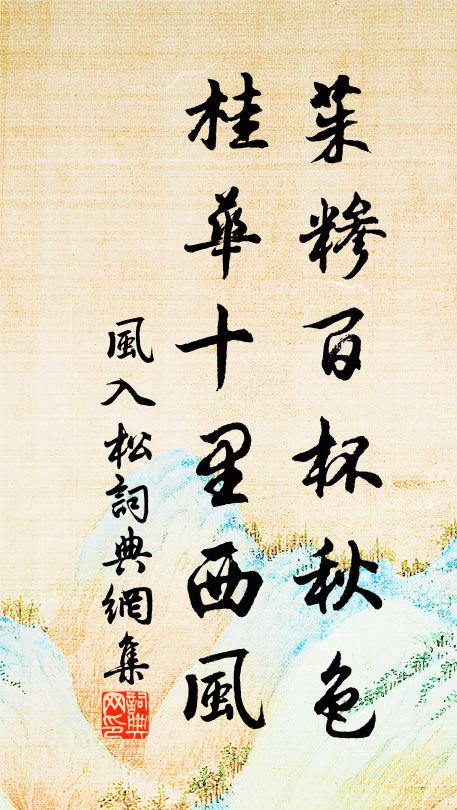 茱糝百杯秋色
桂華十里西風
風入松詞典網集
詞典
网印